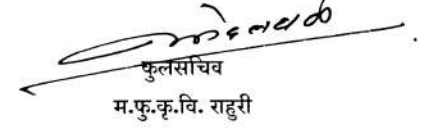 कुलसचिव
म.फु.कृ.वि. राहुरी